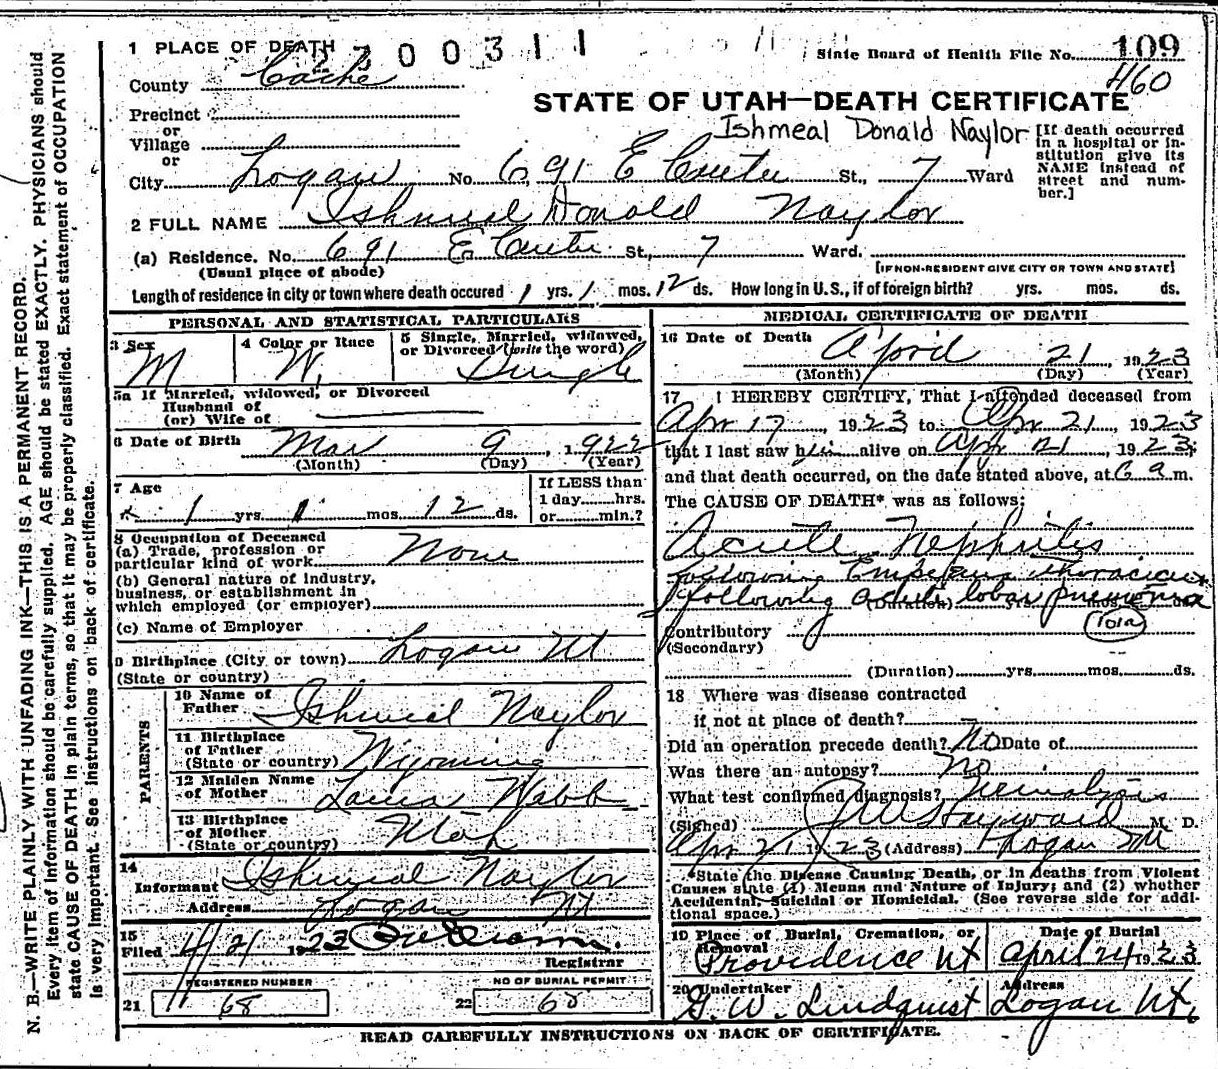 1 PLACE OF DEATH 2300311
State Board of Health File No. 109
County Cache
460
STATE OF UTAH—DEATH CERTIFICATE
Precinct
or
Village
or
Ishmeal Donald Naylor
[If death occurred in a hospital or institution give its NAME instead of street and number.]
City Logan No. 691 E Center St., 7 Ward
2 FULL NAME Ishmeal Donald Naylor
(a) Residence. No. 691 E Center St., 7 Ward.
(Usual place of abode) [IF NON-RESIDENT GIVE CITY OR TOWN AND STATE]
Length of residence in city or town where death occured 1 yrs. 1 mos. 12 ds. How long in U.S., if of foreign birth? yrs. mos. ds.
PERSONAL AND STATISTICAL PARTICULARS
3 Sex M
4 Color or Race W.
5 Single, Married, widowed, or Divorced (write the word) Single
5a If Married, widowed, or Divorced
Husband of
(or) Wife of
6 Date of Birth Mar 9, 1922
(Month) (Day) (Year)
7 Age
1 yrs. 1 mos. 12 ds.
If LESS than
1 day......hrs.
or......min.?
8 Occupation of Deceased
(a) Trade, profession or
particular kind of work None
(b) General nature of industry,
business, or establishment in
which employed (or employer)
(c) Name of Employer
9 Birthplace (City or town) Logan Ut
(State or country)
PARENTS
10 Name of
Father Ishmeal Naylor
11 Birthplace
of Father
(State or country) Wyoming
12 Maiden Name
of Mother Webb
13 Birthplace
of Mother
(State or country) Utah
14
Informant Ishmeal Naylor
Address Logan Ut
15
Filed 4/21 1923
Registrar
REGISTERED NUMBER
21 68
NO OF BURIAL PERMIT
22 68
MEDICAL CERTIFICATE OF DEATH
16 Date of Death April 21, 1923
(Month) (Day) (Year)
17 I HEREBY CERTIFY, That I attended deceased from
Apr 17, 1923 to Apr 21, 1923
that I last saw him alive on Apr 21, 1923;
and that death occurred, on the date stated above, at 6 a.m.
The CAUSE OF DEATH* was as follows:
Acute Nephritis
following Empyema thoracic
following acute lobar pneumonia
(Duration) yrs. mos. ds.
Contributory 101a
(Secondary)
(Duration) yrs. mos. ds.
18 Where was disease contracted
if not at place of death?
Did an operation precede death? No Date of
Was there an autopsy? No
What test confirmed diagnosis?
(Signed) Hayward M. D.
Apr 21 1923 (Address) Logan Ut
*State the Disease Causing Death, or in deaths from Violent
Causes state (1) Means and Nature of Injury; and (2) whether
Accidental, Suicidal or Homicidal. (See reverse side for addi-
tional space.)
19 Place of Burial, Cremation, or
Removal
Providence Ut
Date of Burial
April 24 1923
20 Undertaker
G. W. Lindquist
Address
Logan Ut.
READ CAREFULLY INSTRUCTIONS ON BACK OF CERTIFICATE.
N. B.—WRITE PLAINLY WITH UNFADING INK—THIS IS A PERMANENT RECORD.
Every item of information should be carefully supplied. AGE should be stated EXACTLY. PHYSICIANS should
state CAUSE OF DEATH in plain terms, so that it may be properly classified. Exact statement of OCCUPATION
is very important. See instructions on back of certificate.